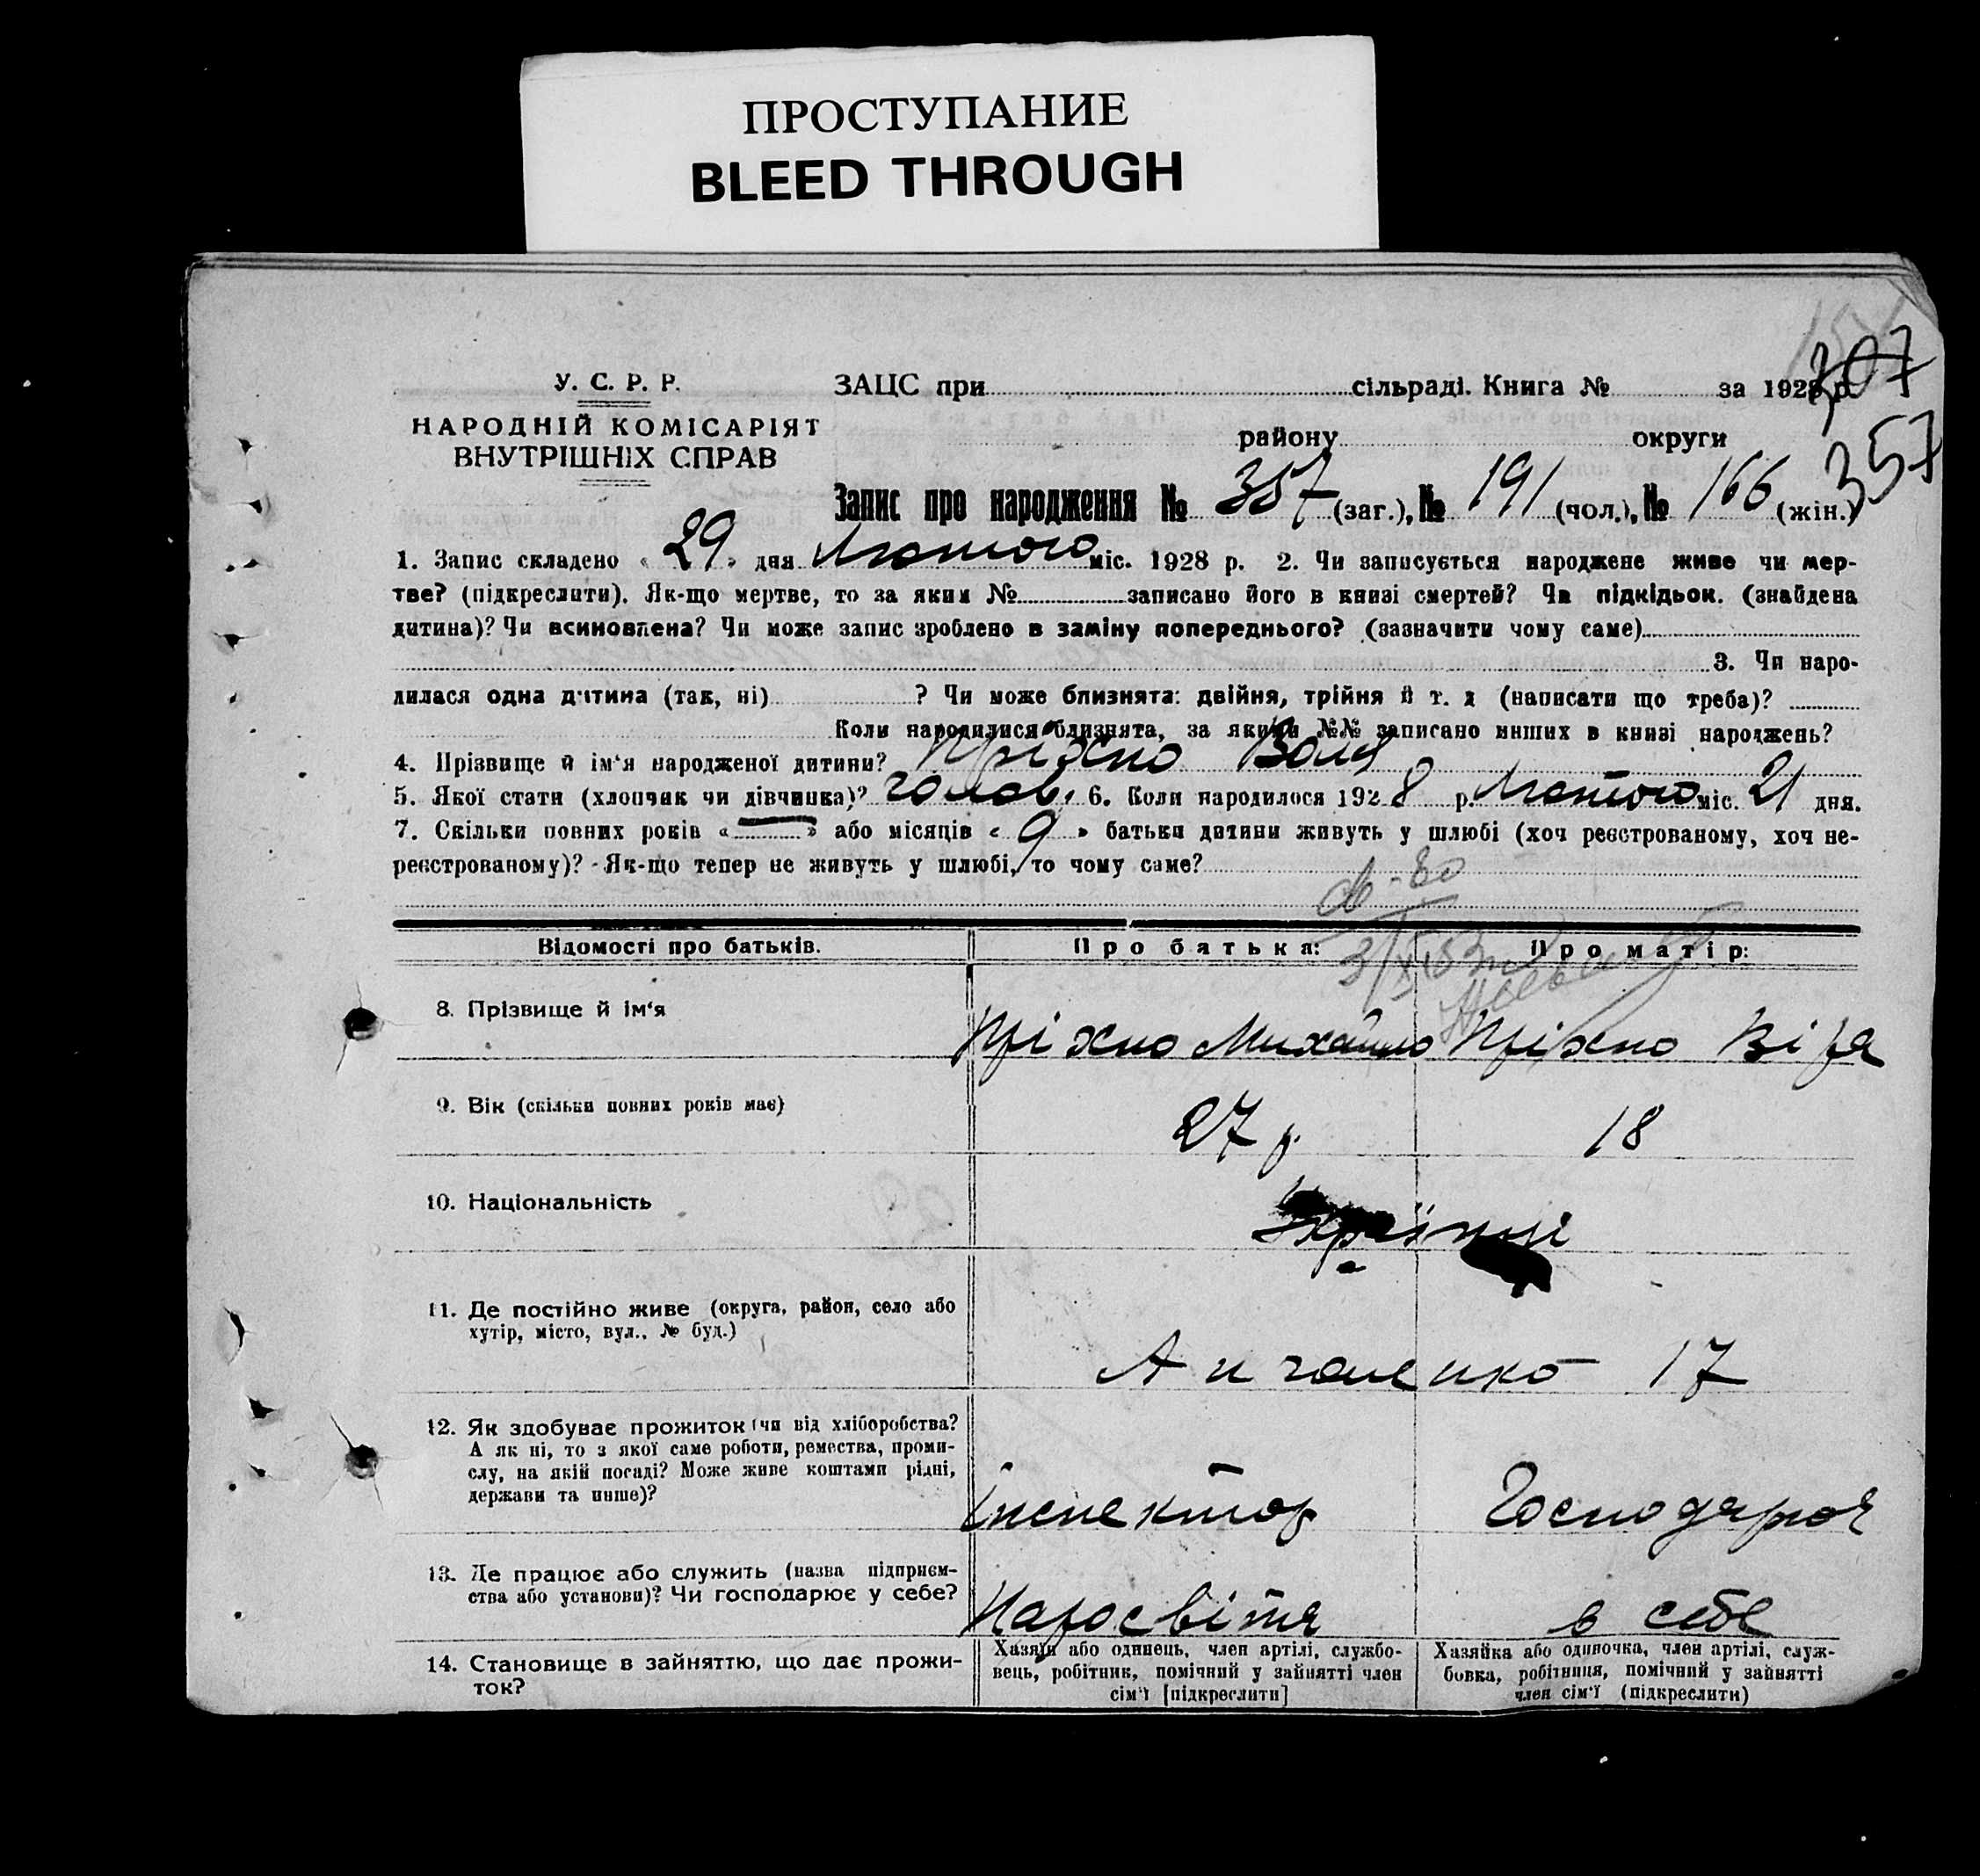 ПРОСТУПАНИЕ
BLEED THROUGH
У. С. Р. Р.
НАРОДНІЙ КОМІСАРІЯТ
ВНУТРІШНІХ СПРАВ
ЗАЦС при сільраді. Книга № за 1928 р.
307
району округи
357
Запис про народження № 357 (заг.), № 191 (чол.), № 166 (жін.)
1. Запис складено « 29 » дня Лютого міс. 1928 р. 2. Чи записується народжене живе чи мер-
тве? (підкреслити). Як-що мертве, то за яким № записано його в книзі смертей? Чи підкідьок. (знайдена
дитина)? Чи всиновлена? Чи може запис зроблено в заміну попереднього? (зазначити чому саме)
3. Чи наро-
дилася одна дитина (так, ні) ? Чи може близнята: двійня, трійня й т. д (написати що треба)?
Коли народилися близнята, за якими №№ записано инших в книзі народжень?
4. Прізвище й ім'я народженої дитини? Пріхно Воля
5. Якої статі (хлопчак чи дівчинка)? чолов. 6. Коли народилося 1928 р. Лютого міс. 21 дня.
7. Скільки повних років « — » або місяців « 9 » батьки дитини живуть у шлюбі (хоч реєстрованому, хоч не-
реєстрованому)? Як-що тепер не живуть у шлюбі, то чому саме?
Відомості про батьків. Про батька: Про матір:
8. Прізвище й ім'я Пріхно Михайло Пріхно Віра
9. Вік (скільки повних років має) 27 р. 18
10. Національність Українці
11. Де постійно живе (округа, район, село або
хутір, місто, вул., № буд.)
17
12. Як здобуває прожиток (чи від хліборобства?
А як ні, то з якої саме роботи, ремества, проми-
слу, на якій посаді? Може живе коштами рідні,
держави та инше)?
Інспектор Господарює
13. Де працює або служить (назва підприєм-
ства або установи)? Чи господарює у себе?
Наросвіта в себе
14. Становище в зайняттю, що дає прожи-
ток?
Хазяїн або одинець, член артілі, службо-
вець, робітник, помічний у зайнятті член
сім'ї [підкреслити]
Хазяйка або одиночка, член артілі, служ-
бовка, робітниця, помічний у зайнятті
член сім'ї (підкреслити)